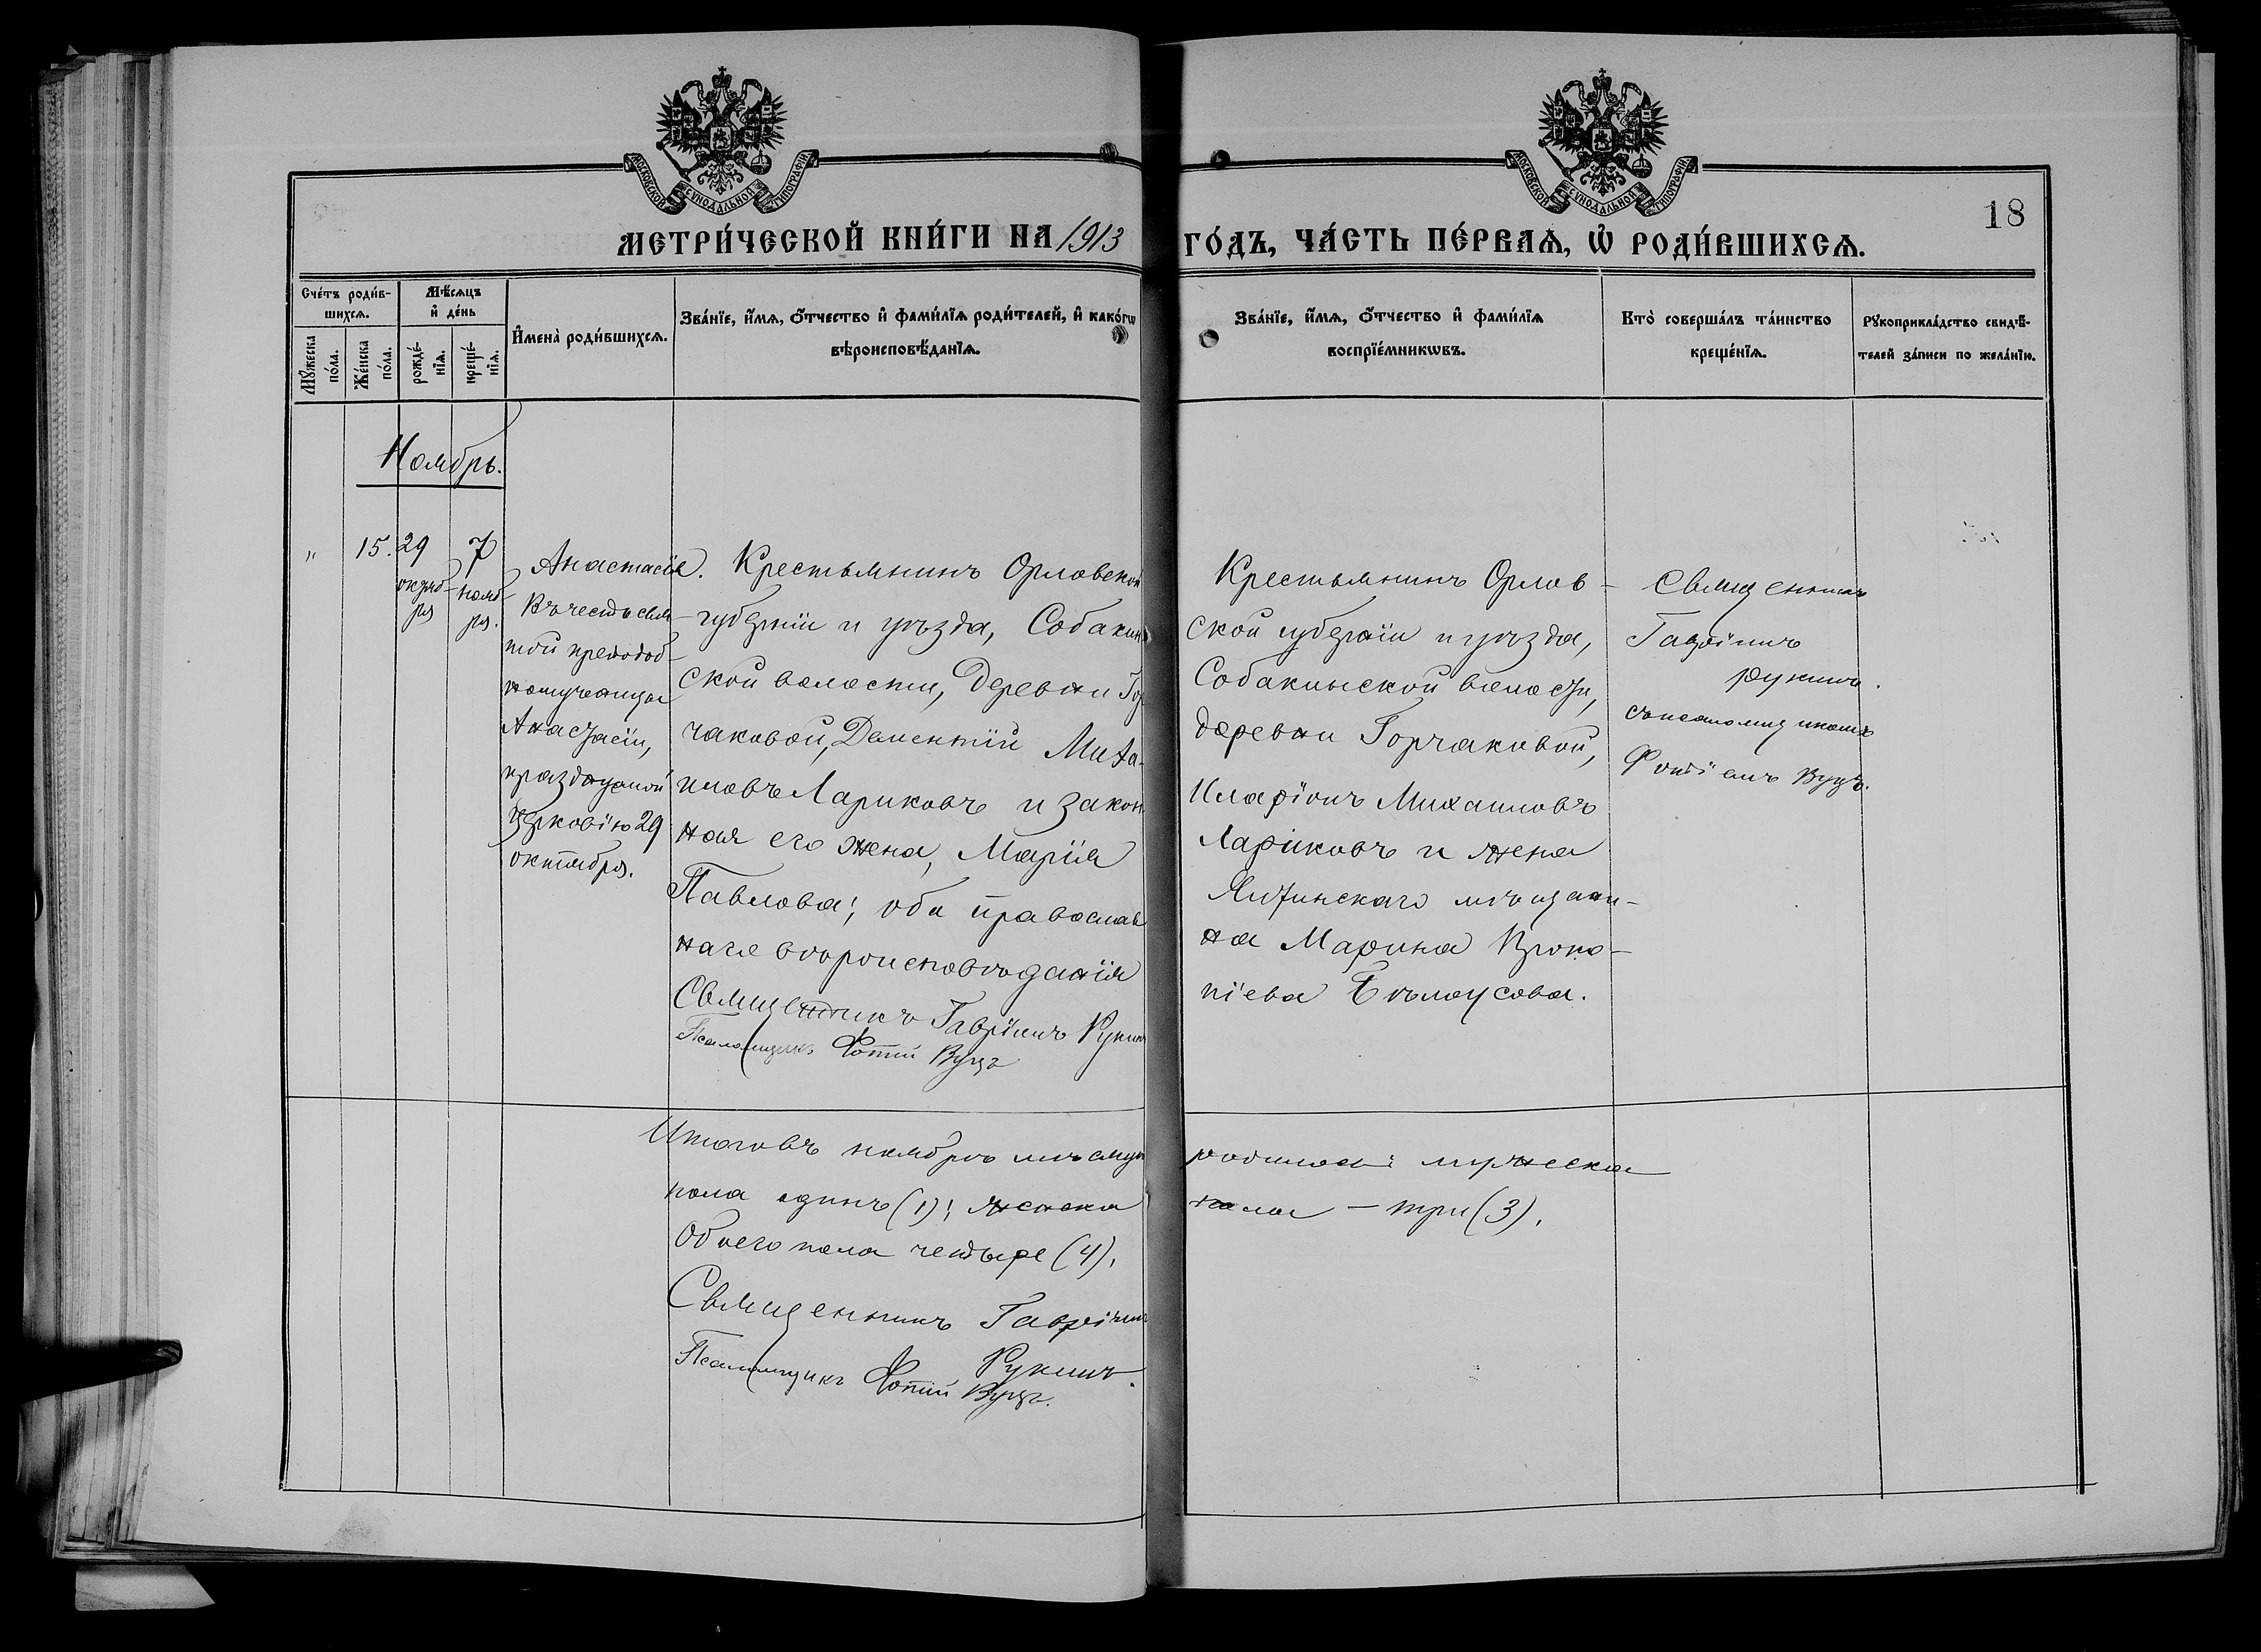 МОСКОВСКОЙ СѴНОДАЛЬНОЙ ТИПОГРАФІИ
МОСКОВСКОЙ СѴНОДАЛЬНОЙ ТИПОГРАФІИ
18
МЕТРИ́ЧЕСКОЙ КНИ́ГИ НА 1913 ГО́ДЪ, ЧА́СТЬ ПЕ́РВАѦ, Ѡ҆ РОДИ́ВШИХСѦ.
Сче́тъ роди́в-
шихсѧ.
Мꙋ́жеска по́ла.
Же́нска по́ла.
Мѣ́сѧцъ
и҆ де́нь
рожде́-
нїѧ.
креще́-
нїѧ.
И҆мена̀ роди́вшихсѧ.
Зва́нїе, и҆́мѧ, ѻ҆́тчество и҆ фами́лїѧ роди́телей, и҆ како́гѡ
вѣроисповѣ́данїѧ.
Зва́нїе, и҆́мѧ, ѻ҆́тчество и҆ фами́лїѧ
воспрїе́мникѡвъ.
Кто̀ соверша́лъ та́инство
креще́нїѧ.
Рꙋкоприкла́дство свидѣ́-
телей за́писи по жела́нїю.
Ноябрь.
" 15. 29 7
октяб-
ря
нояб-
ря.
Анастасія.
Въ честь свя-
той преподоб-
номученицы
Анастасіи,
празднуемой
церковію 29
октября.
Крестьянинъ Орловской
губерніи и уѣзда, Собакин-
ской волости, деревни Гор-
чаковой, Дементій Миха-
иловъ Лариковъ и закон-
ная его жена, Марія
Павлова; оба православ
наго вѣроисповѣданія
Священникъ Гавріилъ Рукинъ
Псаломщикъ Фотій Вуцъ
Крестьянинъ Орлов-
ской губерніи и уѣзда,
Собакинской волости,
деревни Горчаковой,
Иларіонъ Михаиловъ
Лариковъ и жена
Ялтинскаго мѣщани-
на Марина Проко-
піева Бѣлоусова.
Священникъ
Гавріилъ
Рукинъ.
съ псаломщикомъ
Фотіемъ Вуцъ.
Итого въ ноябрѣ мѣсяцѣ родилось: мужеска
пола одинъ (1); женска пола - три (3).
Обоего пола четыре (4).
Священникъ Гавріилъ
Рукинъ.
Псаломщикъ Фотій Вуцъ.